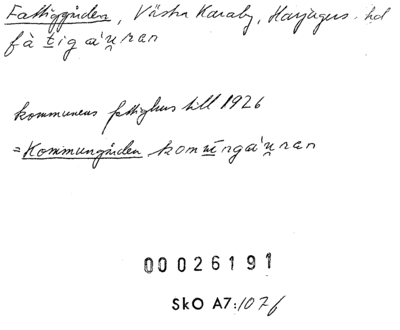 Fattiggården, Västra Karaby, Harjagers hd
fàtigá'u̯ran
kommunens fattighus till 1926
=Kommungården komu̲ngá'u̯ran
00026191
SkO A7:107b